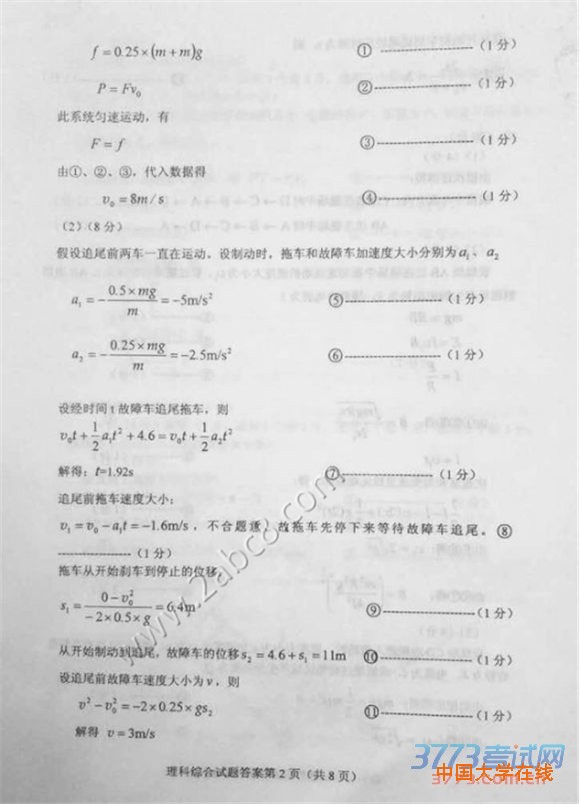 f=0.25×(m+m)g ① ------------------ (1分)
P=Fv₀ ②------------------ (1分)
此系统匀速运动，有
F=f ③------------------ (1分)
由①、②、③，代入数据得
v₀=8m/s ④------------------ (1分)
(2)(8分)
假设追尾前两车一直在运动。设制动时，拖车和故障车加速度大小分别为a₁、a₂
a₁=-(0.5×mg)/m=-5m/s² ⑤------------------ (1分)
a₂=-(0.25×mg)/m=-2.5m/s² ⑥------------------ (1分)
设经时间t故障车追尾拖车，则
v₀t+1/2a₁t²+4.6=v₀t+1/2a₂t²
解得：t=1.92s ⑦------------------ (1分)
追尾前拖车速度大小：
v₁=v₀-a₁t=-1.6m/s，不合题意，故拖车先停下来等待故障车追尾。⑧
------------------ (1分)
拖车从开始刹车到停止的位移，
s₁=(0-v₀²)/(-2×0.5×g)=6.4m， ⑨------------------ (1分)
从开始制动到追尾，故障车的位移s₂=4.6+s₁=11m ⑩------------------ (1分)
设追尾前故障车速度大小为v，则
v²-v₀²=-2×0.25×gs₂ ⑪------------------ (1分)
解得 v=3m/s
理科综合试题答案第2页（共8页）
www.2abc8.com
3773考试网
中国大学在线